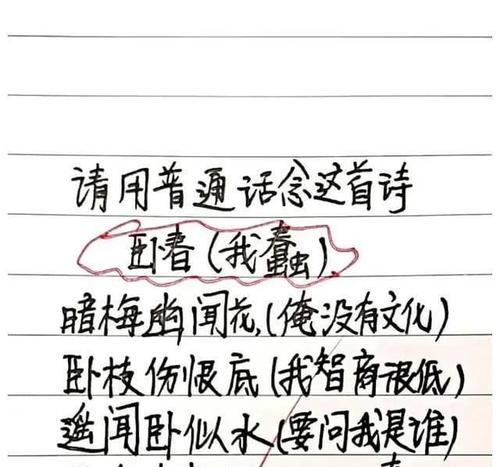 请用普通话念这首诗
卧春(我蠢)
暗梅幽闻花,(俺没有文化)
卧枝伤恨底(我智商很低)
遥闻卧似水(要问我是谁)